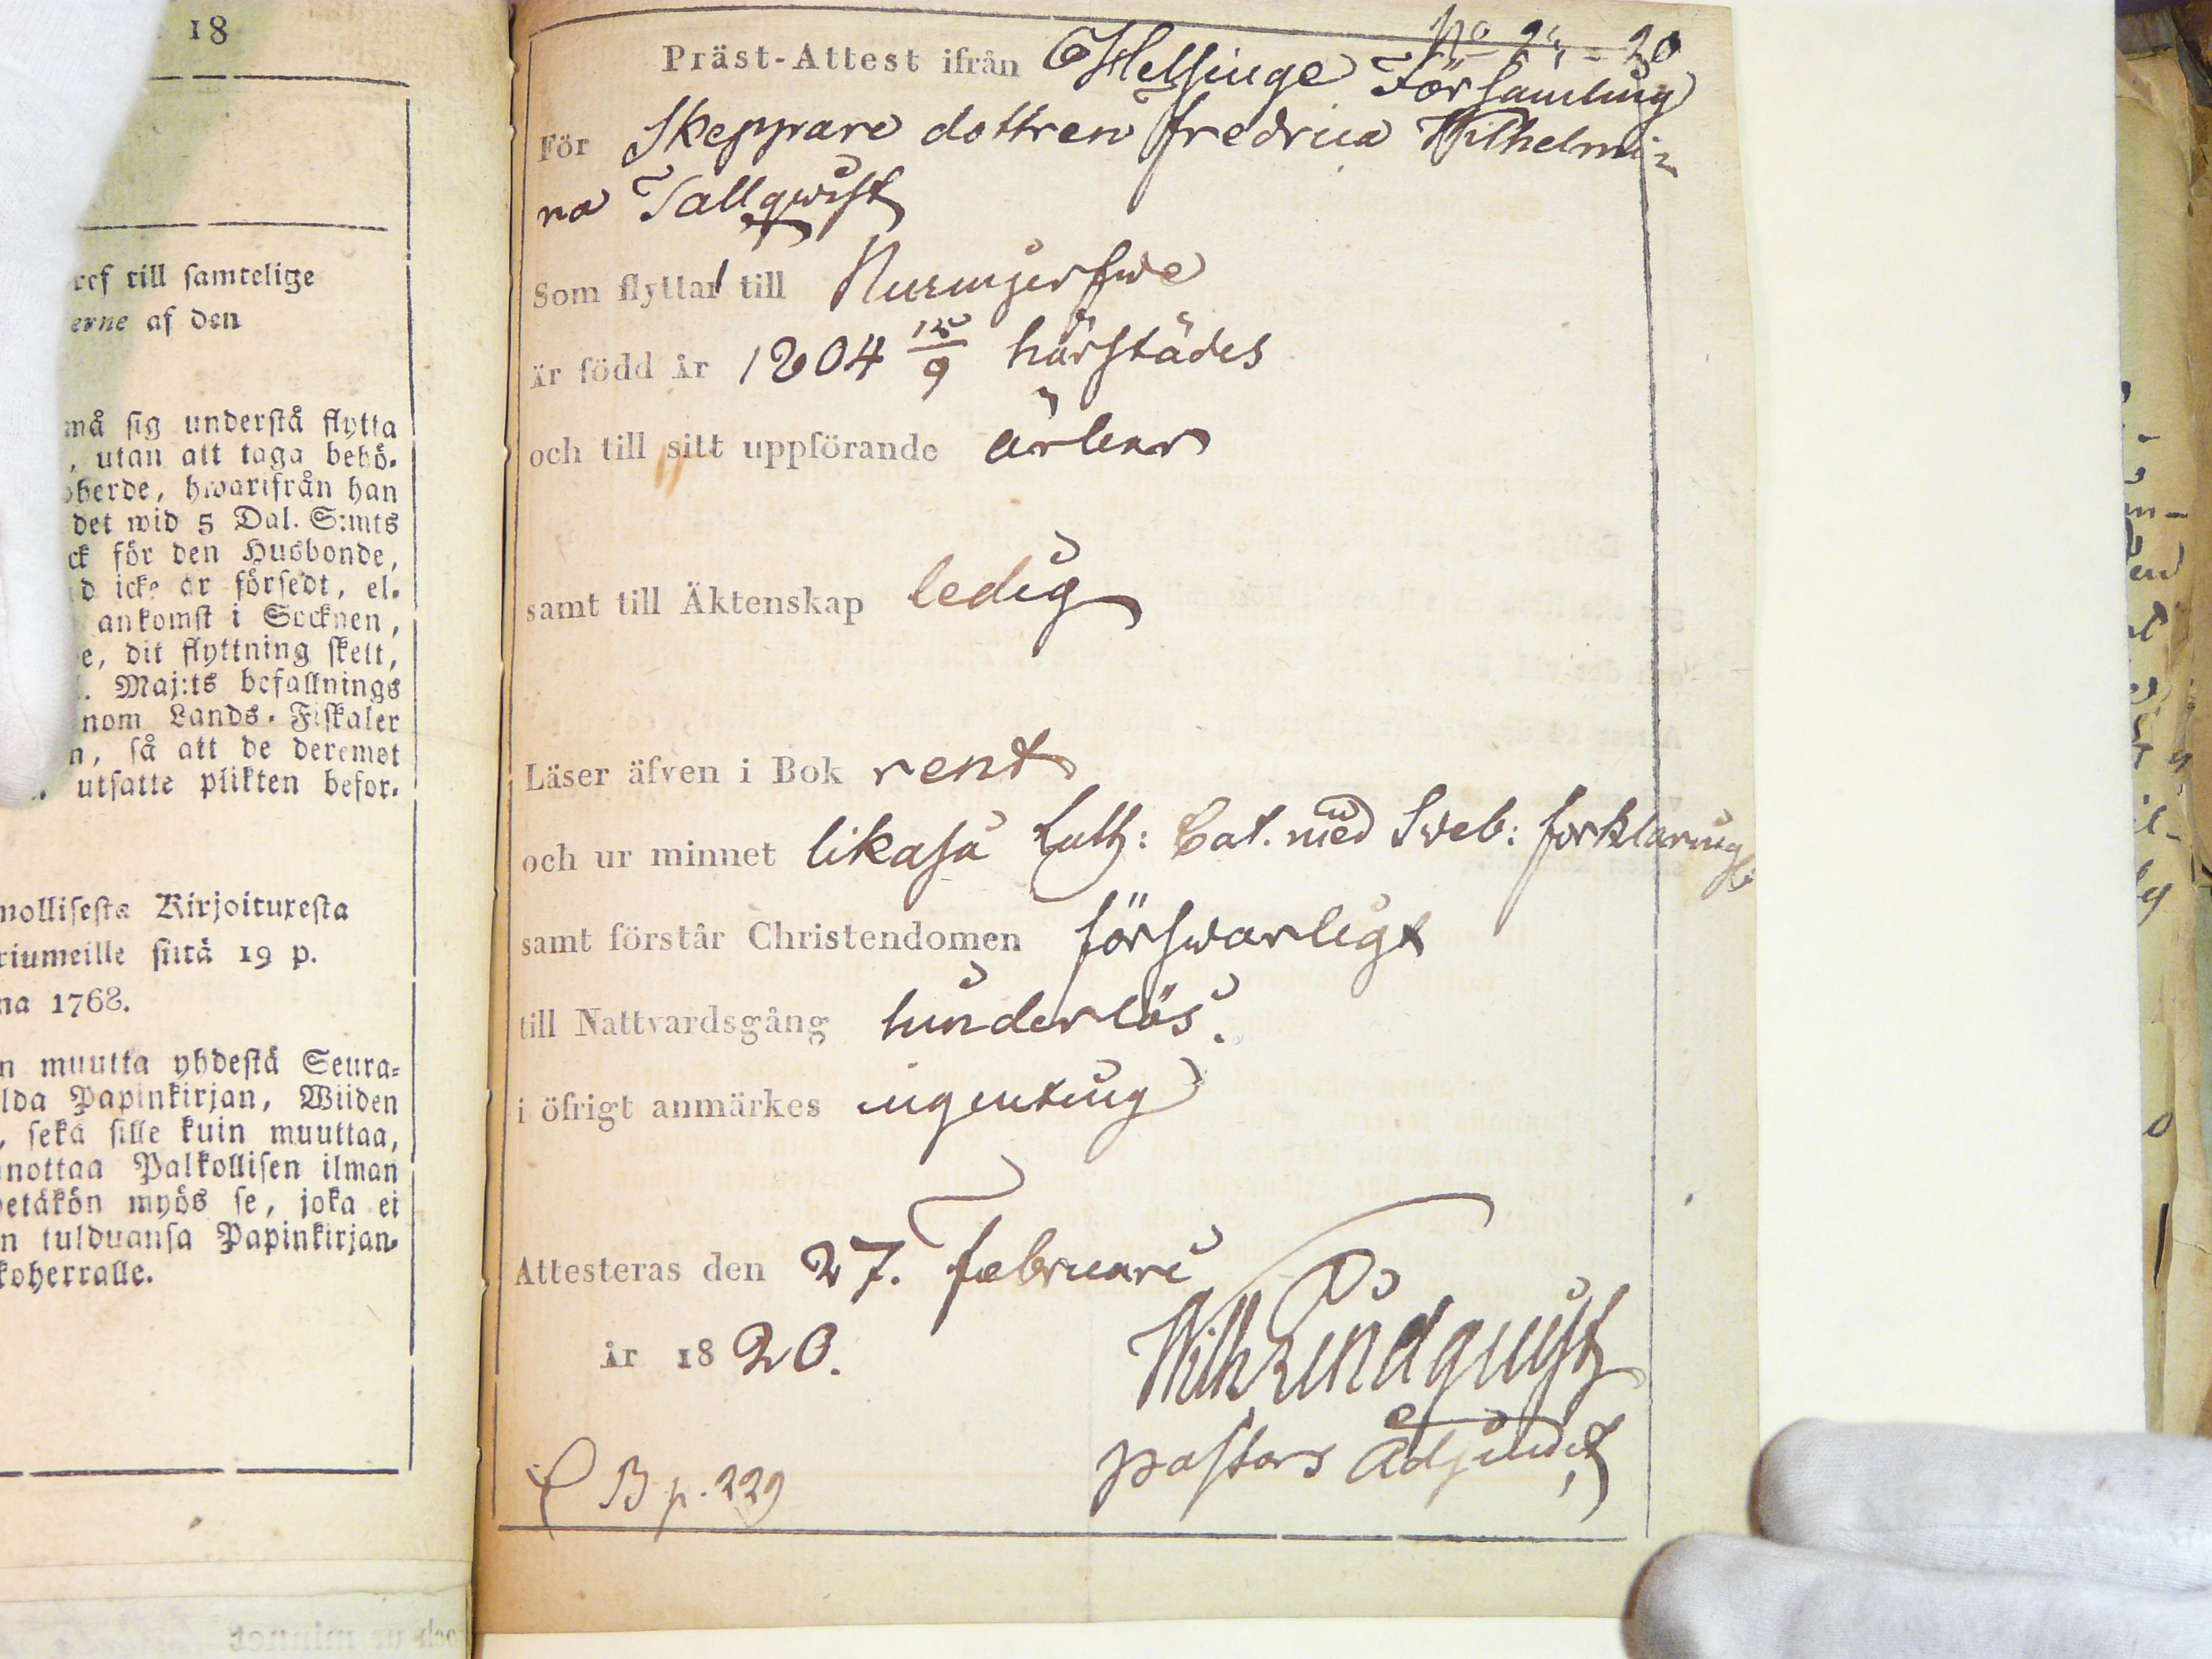 18
ref till samtelige
erne af den
må sig understå flytta
, utan att taga behö-
oherde, hwarifrån han
det wid 5 Dal. S:mts
ck för den Husbonde,
d icke är försedt, el-
ankomst i Socknen,
e, dit flyttning skett,
. Maj:ts befallnings
nom Lands-Fiskaler
n, så att de deremot
utsatte plikten befor-
mollisesta Kirjoituxesta
riumeille siitä 19 p.
na 1768.
n muutta yhdestä Seura-
lda Papinkirjan, Wiiden
, sekä sille kuin muuttaa,
nottaa Palkollisen ilman
etäkön myös se, joka ei
n tulduansa Papinkirjan-
koherralle.
No 2, = 20
Präst-Attest ifrån Helsinge Församling
För Skeppare dottren Fredrica Wilhelmi-
na Tallqwist
Som flyttar till Nurmjerfwe
är född år 1804 15/9 härstädes
och till sitt uppförande ärbar
samt till Äktenskap ledig
Läser äfven i Bok rent
och ur minnet likaså Luth: Cat. med Sveb: förklaring
samt förstår Christendomen förswarligt
till Nattvardsgång hinderlös.
i öfrigt anmärkes ingenting
Attesteras den 27. Februari
år 1820.
Wilh Lindquist
Pastors Adjunct
B p. 229
och ur minnet